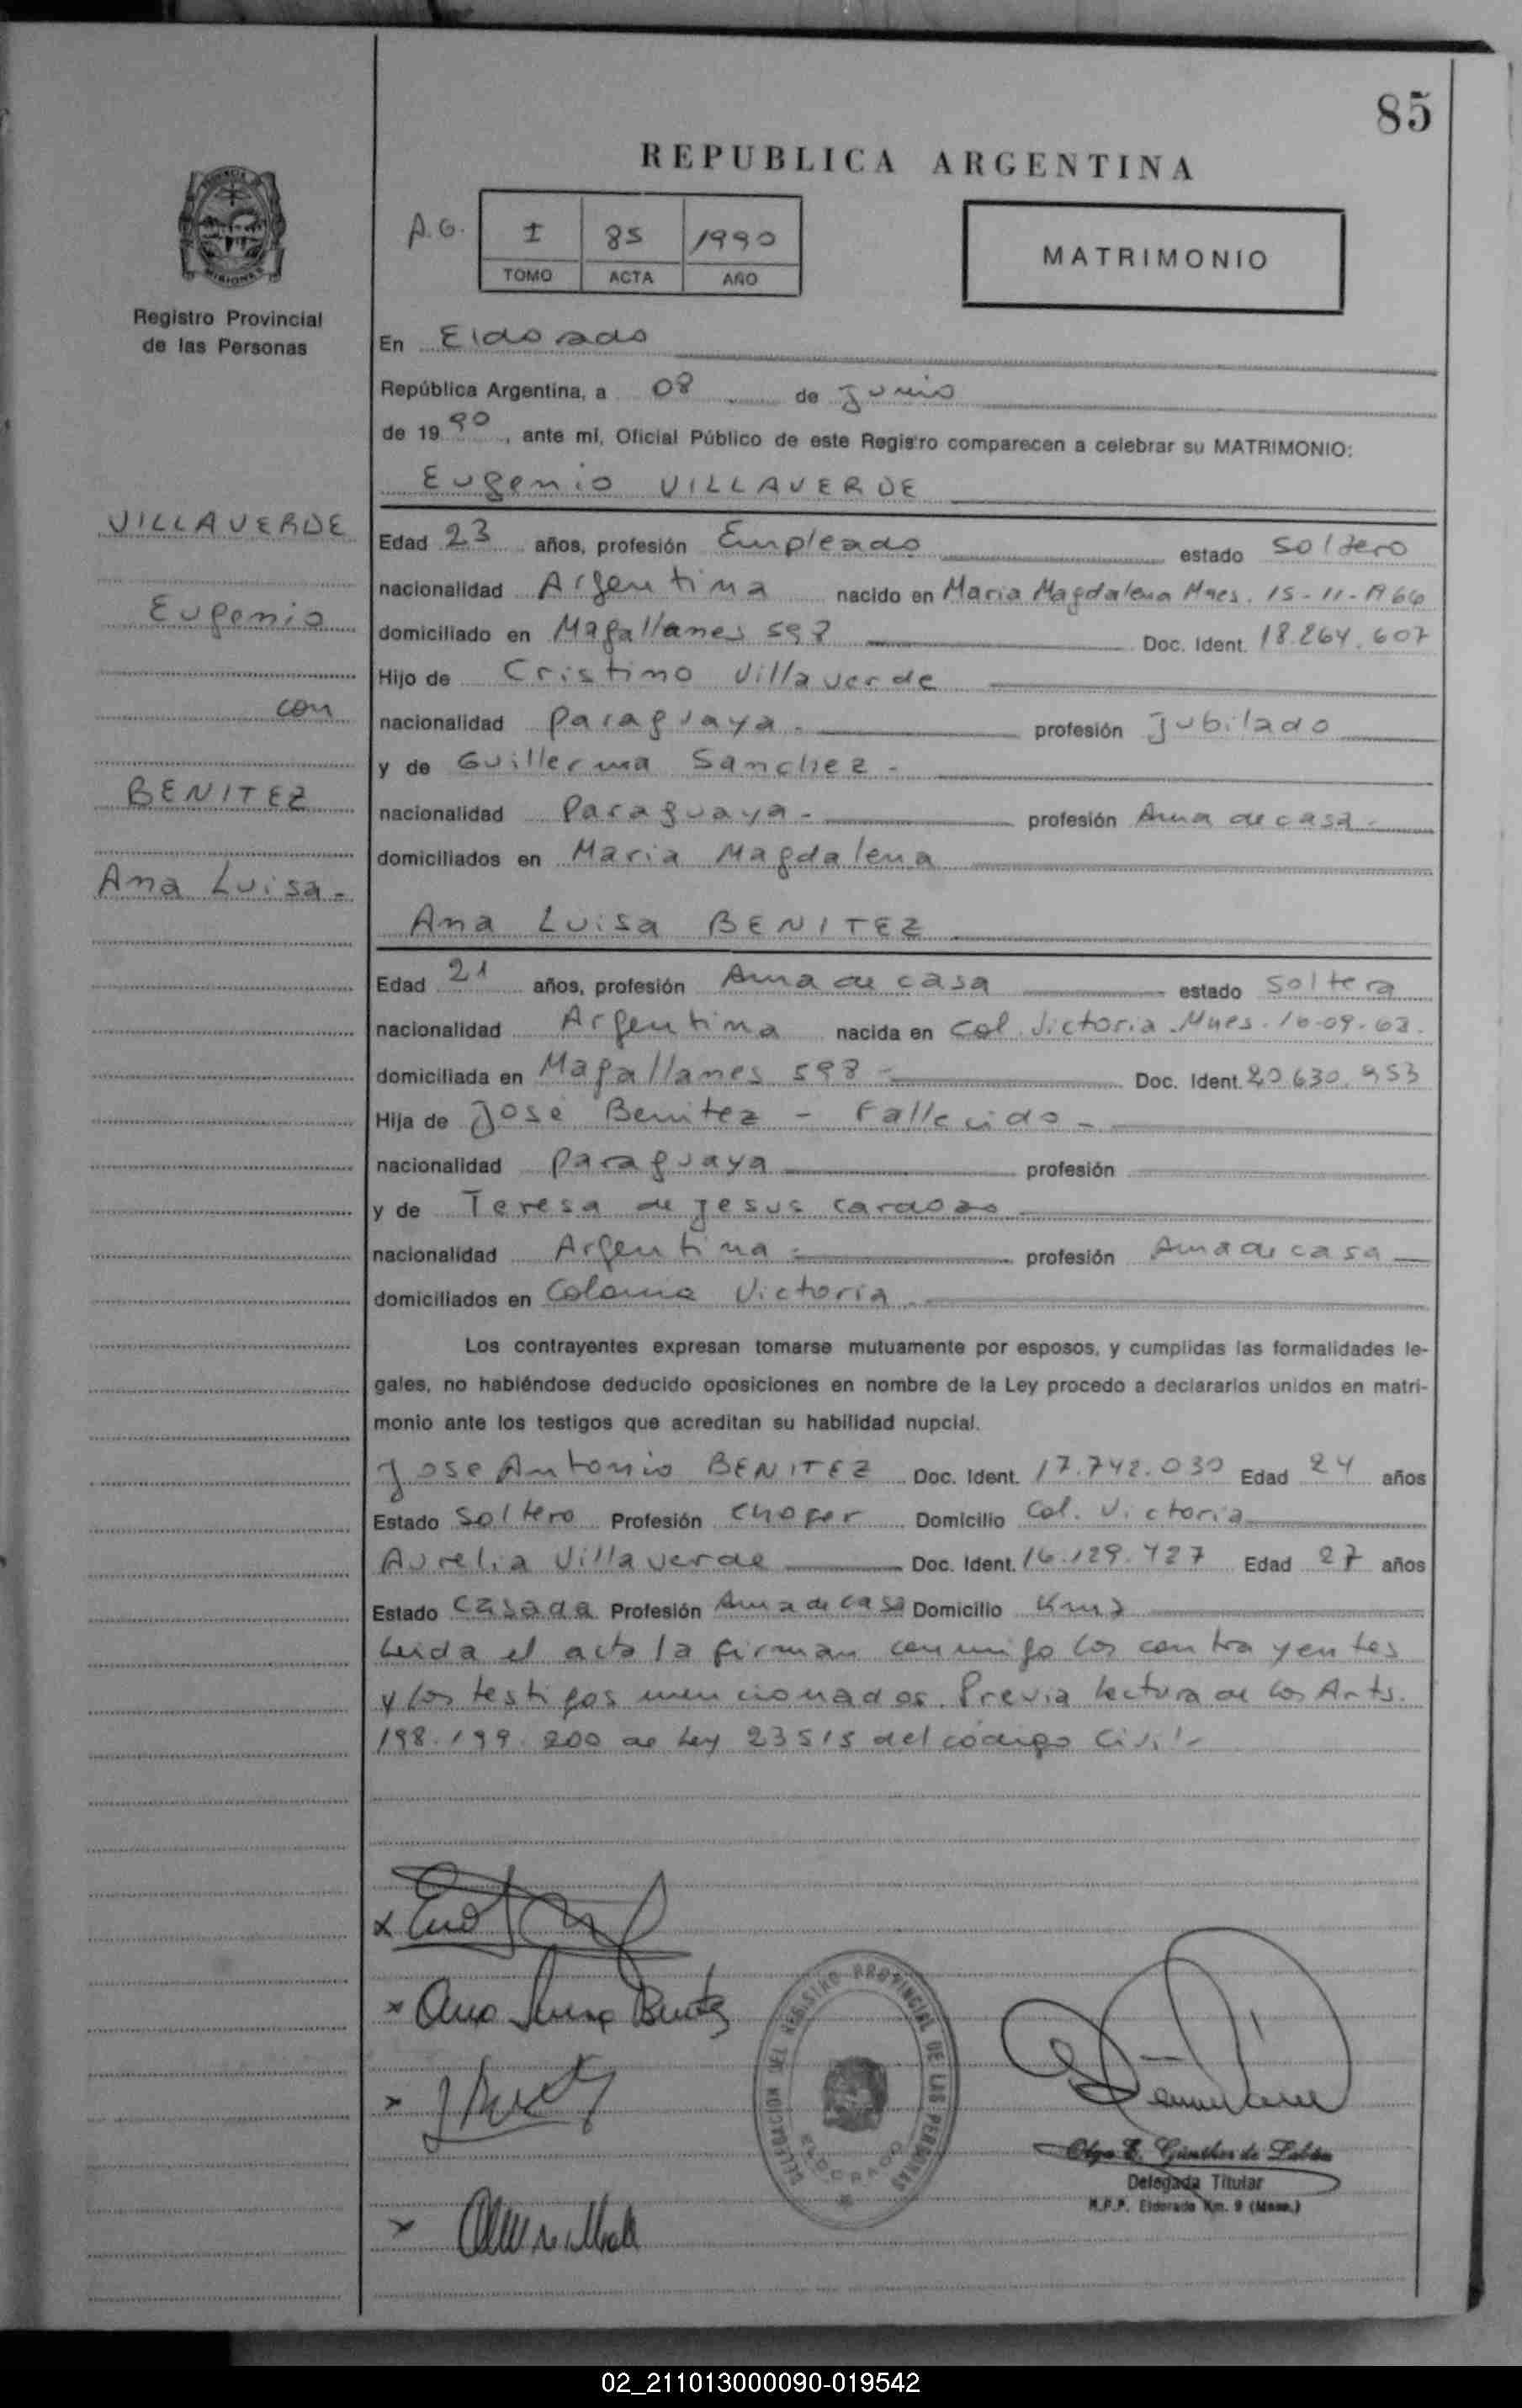 85
REPUBLICA ARGENTINA
A.G. I 85 1990
TOMO ACTA AÑO
MATRIMONIO
Registro Provincial
de las Personas
En Eldorado
República Argentina, a 08 de Junio
de 1990, ante mi, Oficial Público de este Registro comparecen a celebrar su MATRIMONIO:
Eugenio VILLAVERDE
VILLAVERDE
Eugenio
con
BENITEZ
Ana Luisa-
Edad 23 años, profesión Empleado estado Soltero
nacionalidad Argentina nacido en Maria Magdalena Mnes. 15-11-1966
domiciliado en Magallanes 598 Doc. Ident. 18.264.607
Hijo de Cristino Villaverde
nacionalidad Paraguaya- profesión Jubilado
y de Guillerma Sanchez-
nacionalidad Paraguaya- profesión Ama de casa-
domiciliados en Maria Magdalena
Ana Luisa BENITEZ
Edad 21 años, profesión Ama de casa estado Soltera
nacionalidad Argentina nacida en Col. Victoria Mnes. 10-09-68.
domiciliada en Magallanes 598- Doc. Ident. 20.630.953
Hija de José Benitez - Fallecido-
nacionalidad Paraguaya profesión
y de Teresa de Jesus Cardozo
nacionalidad Argentina- profesión Ama de casa
domiciliados en Colonia Victoria
Los contrayentes expresan tomarse mutuamente por esposos, y cumplidas las formalidades le-
gales, no habiéndose deducido oposiciones en nombre de la Ley procedo a declararlos unidos en matri-
monio ante los testigos que acreditan su habilidad nupcial.
Jose Antonio BENITEZ Doc. Ident. 17.742.030 Edad 24 años
Estado Soltero Profesión Chofer Domicilio Col. Victoria
Aurelia Villaverde Doc. Ident. 16.129.427 Edad 27 años
Estado Casada Profesión Ama de casa Domicilio
Leida el acta la firman conmigo los contrayentes
y los testigos mencionados. Previa lectura de los Arts.
198.199.200 de Ley 23515 del código Civil-
x
x Ana Luisa Benitez
x
x
DELEGACION DEL REGISTRO PROVINCIAL DE LAS PERSONAS
ELDORADO
Olga E. Günther de
Delegada Titular
R.P.P. Eldorado Km. 9 (Mnes.)
02_211013000090-019542